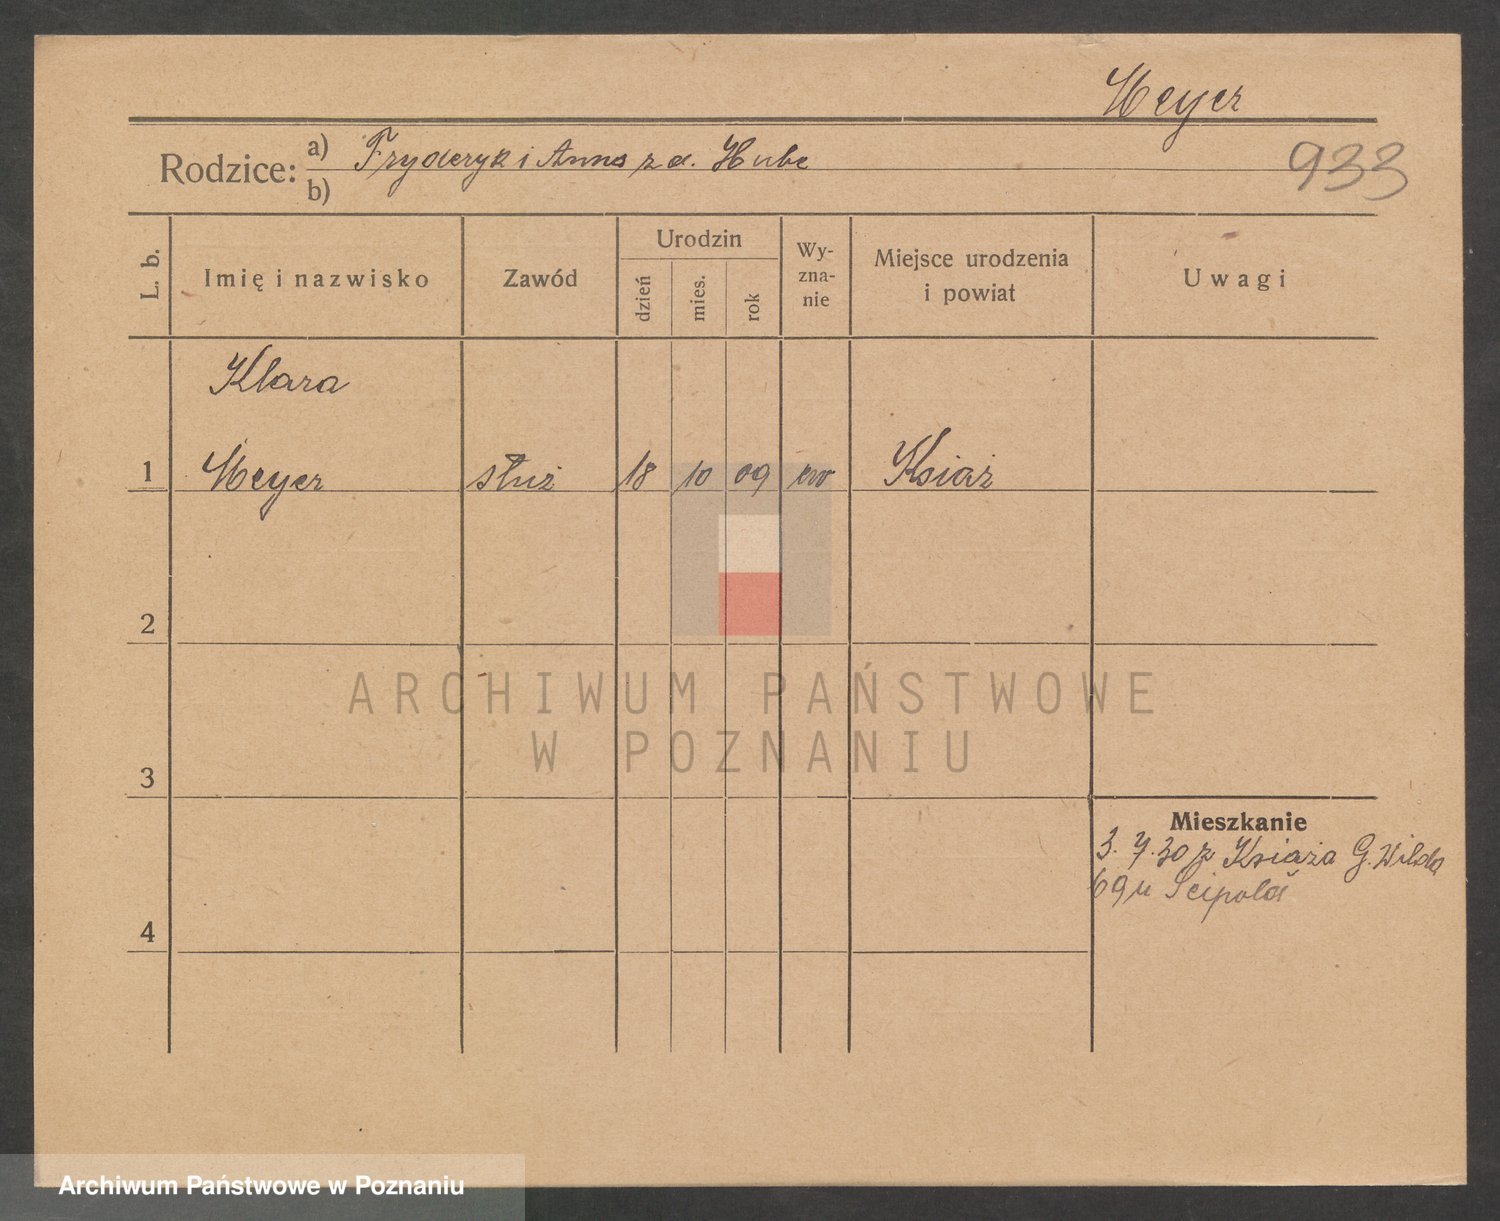 Meyer
933
Rodzice: a) Fryderyk i Anna z d. Hube
b)
L. b. Imię i nazwisko Zawód Urodzin dzień mies. rok Wy-zna-nie Miejsce urodzenia i powiat Uwagi
Klara
1 Meyer służ 18 10 09 ew Książ
2
3
4
Mieszkanie
3. 7. 30 z Książa G. Wilda
69 u Scipold
ARCHIWUM PAŃSTWOWE
W POZNANIU
Archiwum Państwowe w Poznaniu